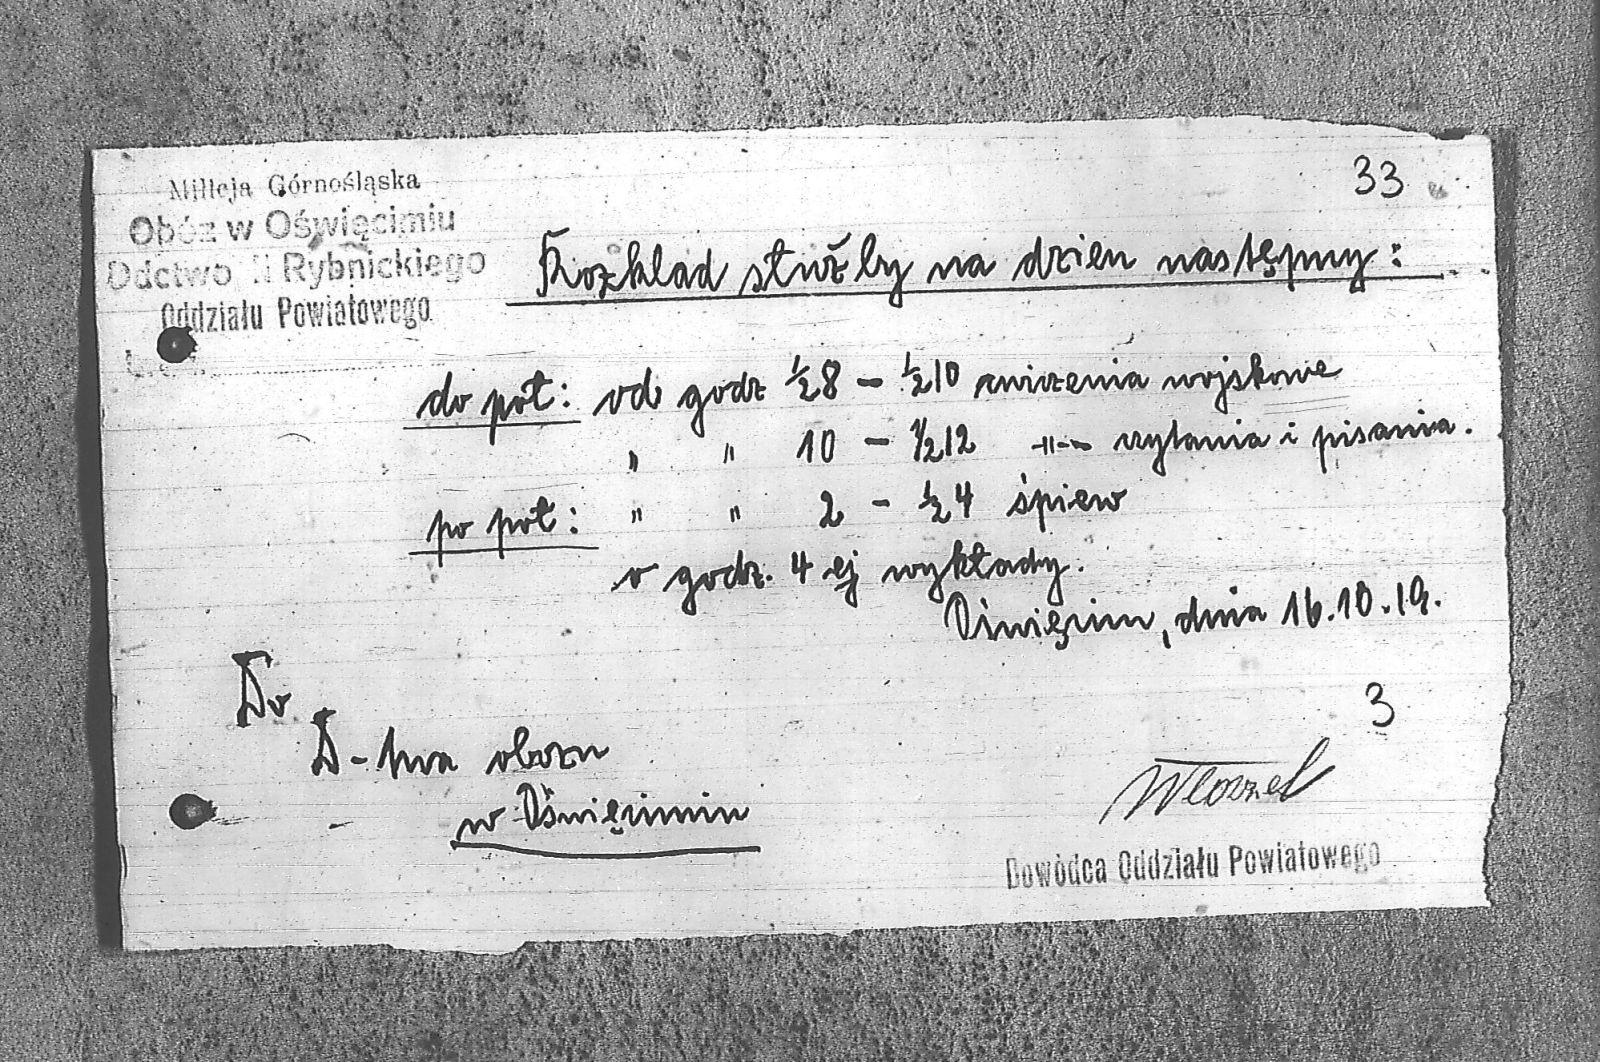 33
Milicja Górnośląska
Obóz w Oświęcimiu
Ddctwo II Rybnickiego
Oddziału Powiatowego
Rozkład służby na dzien następny:
do poł: od godz ½8 – ½10 cwiczenia wojskowe
" " 10 – ½12 -"- czytania i pisania.
po poł: " " 2 – ½4 śpiew
o godz. 4 ej wykłady.
Oświęcim, dnia 16.10.19.
Do
D-twa obozu
w Oświęcimiu
3
Dowódca Oddziału Powiatowego